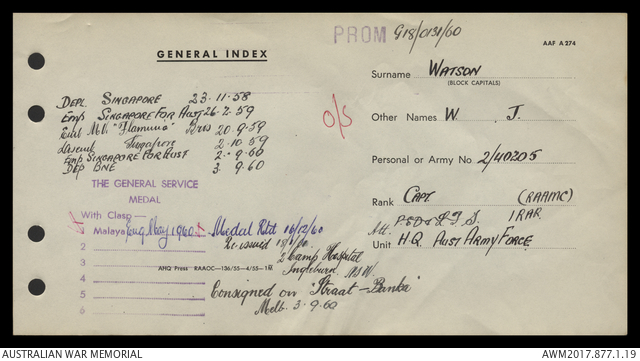 PROM G18/0131/60
AAF A 274
GENERAL INDEX
Surname WATSON
(BLOCK CAPITALS)
DEPL. SINGAPORE 23-11-58
Emp SINGAPORE FOR AUST 26-2-59
M.V. "Flaminia" Bris 20.9.59
Singapore 2-10-59
Emp SINGAPORE FOR AUST 2-9-60
DEP BNE 3.9.60
O/S
Other Names W. J.
Personal or Army No. 2/40205
THE GENERAL SERVICE
MEDAL
With Clasp—
Malaya May 1960
Medal Rtd 16/12/60
Rank CAPT. (RAAMC)
Att. 1 RAR
Unit H.Q. AUST ARMY FORCE
2
3
4
5
6
2 Camp Hospital
Ingleburn. NSW.
AHQ Press RAAOC—136/55—4/55—1M.
Consigned on "Straat-Banka"
Melb. 3-9-60
AUSTRALIAN WAR MEMORIAL
AWM2017.877.1.19